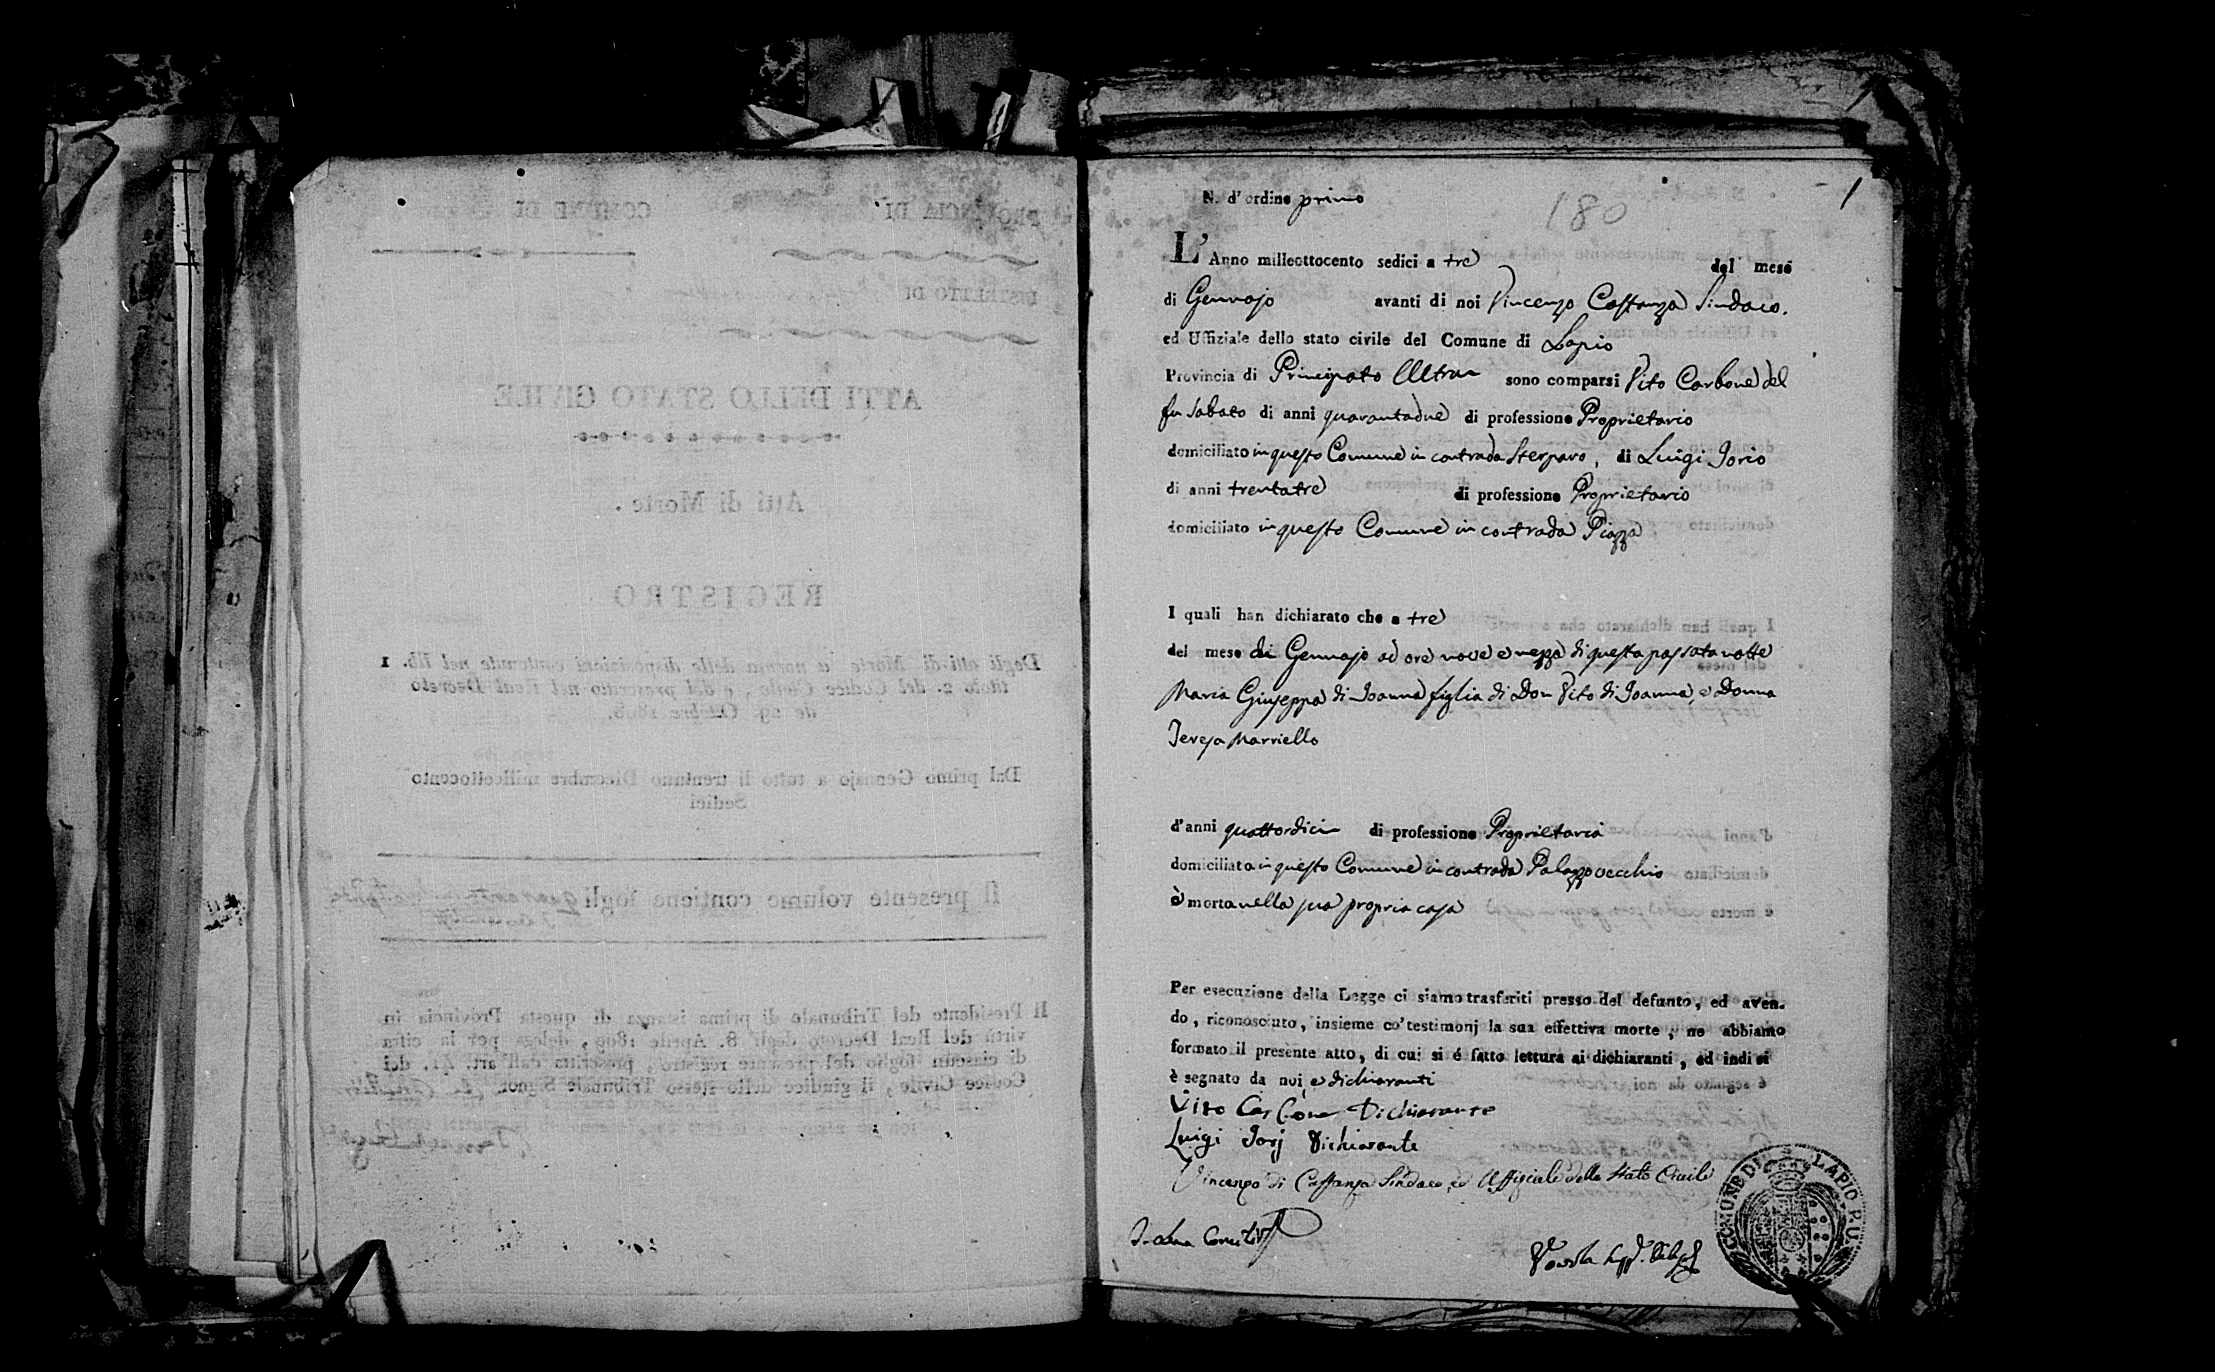 COMUNE DI
PROVINCIA DI
DISTRETTO DI
ATTI DELLO STATO CIVILE
Atti di Morte.
REGISTRO
Degli atti di Morte a norma delle disposizioni contenute nel lib. 1
titolo 2. del Codice Civile, e del prescritto nel Real Decreto
de 29. Ottobre 1808.
Dal primo Gennajo a tutto li trentuno Dicembre milleottocento
Sedici
Il presente volume contiene fogli
Il Presidente del Tribunale di prima istanza di questa Provincia in
virtù del Real Decreto degli 8. Aprile 1809, delega per la cifra
di ciascun foglio del presente registro, prescritta dall'art. 41. del
Codice Civile, il giudice dello stesso Tribunale Signor
1
N. d'ordine primo
180
L'Anno milleottocento sedici a tre del mese
di Gennajo avanti di noi Vincenzo Costanza Sindaco.
ed Uffiziale dello stato civile del Comune di Lapio
Provincia di Principato Ultra sono comparsi Vito Carbone del
fu Sabato di anni quarantadue di professione Proprietario
domiciliato in questo Comune in contrada Sterparo, di Luigi Iorio
di anni trentatre di professione Proprietario
domiciliato in questo Comune in contrada Piazza
I quali han dichiarato che a tre
del mese di Gennajo ad ore nove e mezza di questa passata notte
Maria Giuseppa di Joanna figlia di Don Vito di Joanna, e Donna
Teresa Marriello
d'anni quattordici di professione Proprietaria
domiciliata in questo Comune in contrada Palazzo vecchio
è morta nella sua propria casa
Per esecuzione della Legge ci siamo trasferiti presso del defunto, ed aven-
do, riconosciuto, insieme co' testimonj la sua effettiva morte, ne abbiamo
formato il presente atto, di cui si é fatto lettura ai dichiaranti, ed indi si
è segnato da noi e dichiaranti
Vito Carbone Dichiarante
Luigi Iorj Dichiarante
Vincenzo di Costanza Sindaco, ed Uffiziale dello Stato Civile
COMUNE DI LAPIO P. U.